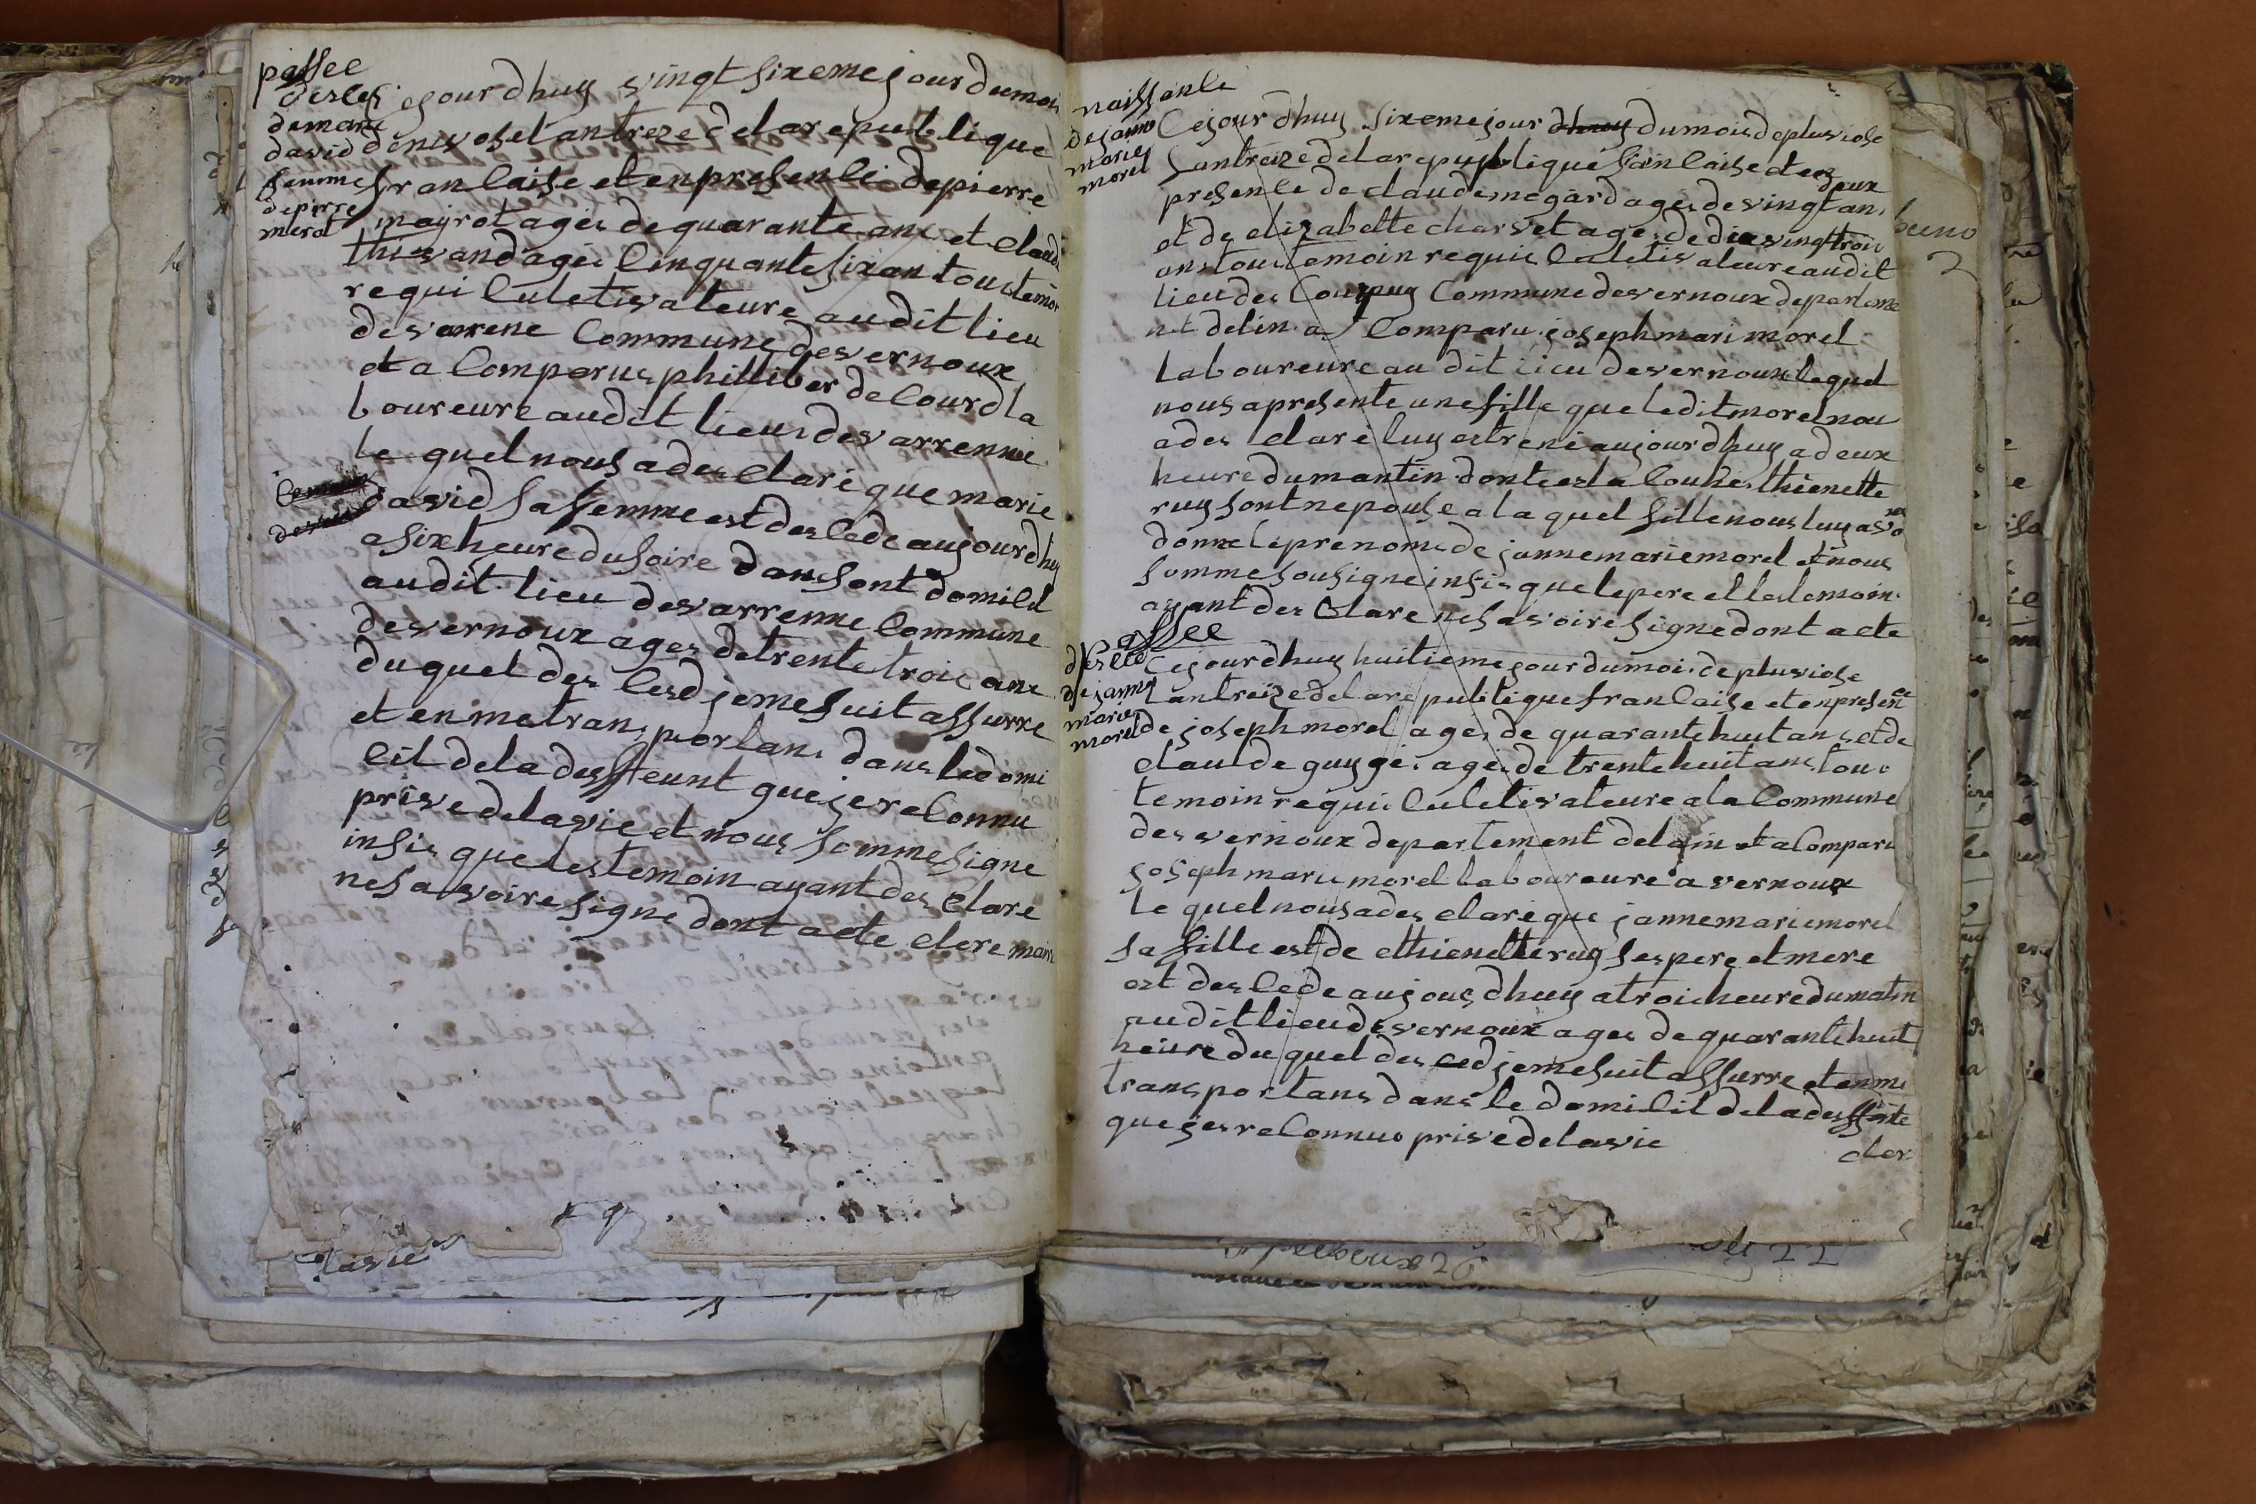 passee
desces
de marie
david
femme
de pierre
merat
cejourdhuy vingt sixeme jour dumois
denivose lantreze delarepublique
franCaise et enpresenCe depierre
mayrot agée dequarante ans et Claude
thevand agée Cinquante six an tous temoin
requi Culetivateure audit lieu
desvarene Commune desvernoux
et a Comparue philliber deCourd la
boureure audit lieu desvarrenne
le quel nous a des Claré que marie
david sa femme est des Cede aujourdhuy
a six heure dusoire dans sont domiCil
audit lieu desvarrenne Commune
desvernoux agée detrente trois ans
duquel des Cesd je me suit assurre
et en metransportans dans le domi
Cil dela desffeunt que je reConnu
prive delavie et nous somme signe
insis que les temoin ayant des Clare
nesavoire signe dont acte Clere maire
lavie
naissenCe
dejanne
marie
morel
Cejourdhuy sixeme jour dumois depluviose
lantreize delarepuplique franCaise et en
presenCe de claude megard agée devingt deux ans
et de elizabette charvet agée de vingt trois
ans tous temoin requis Culetivateure audit
lieu des Courpuy Commune desvernoux departeme
nt delin a Comparu joseph mari morel
laboureure au dit lieu desvernoux lequel
nous a presente une fille que ledit morel nou
a des Claré luy estre né aujourdhuy a deux
heure dumantin dont est aCouhée thienette
ruy sont nepouse a la quel fille nous luy avo
ns
donne le prenom de janne marie morel et nous
somme sousigne insis que le pere et les temoin
ayant des Clare nesavoire signe dont acte
passee
desces
de janne
marie
morel
Cejourdhuy huitieme jour dumois de pluviose
lantreize delarepublique franCaise et enpresenCe
de joseph morel agée de quarante huit ans et de
Claude guyge agée de trente huit ans tous
temoin requis Culetivateure a la Commune
des vernoux departement delain et a Comparu
joseph marie morel laboureure a vernoux
le quel nous a des claré que janne marie morel
sa fille est de ethienette ruy ses pere et mere
est des Cede aujourdhuy a trois heure dumatin
audit lieu desvernoux agée de quarante huit
heure du quel des ced je me suit assurre et en me
transportans dans le domiCil dela desffente
que je reConnuo prive delavie
cler
2
22